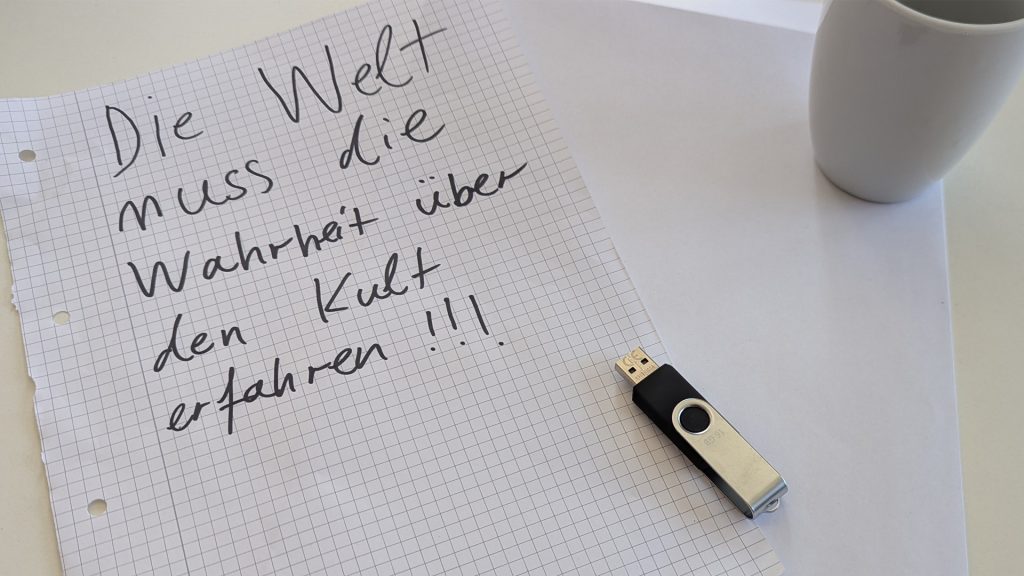 Die Welt
muss die
Wahrheit über
den Kult
erfahren !!!